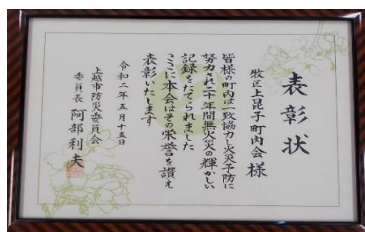 表彰状
牧区上昆子町内会様
皆様の町内は一致協力し火災予防に
努力され二十年間無火災の輝かしい
記録をたてられました
ここに本会はその栄誉を讃え
表彰いたします
令和二年五月十五日
上越市防災委員会
委員長 阿部利夫